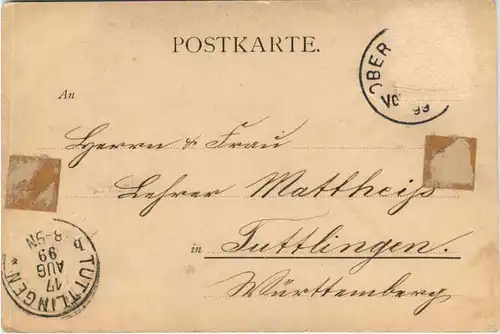 POSTKARTE.
OBER
VO
99
An
Herrn & Frau
Lehrer Mattheiß
in Tuttlingen.
Württemberg
TUTTLINGEN *
17
AUG
99
8-9N
b